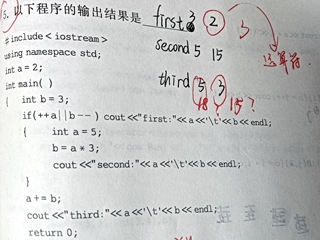 5. 以下程序的输出结果是 first 3 2 3
second 5 15
third 5 3
18 ? 15 ?
运算符
#include<iostream>
using namespace std;
int a=2;
int main( )
{ int b=3;
if(++a||b--) cout<<"first:"<<a<<'\t'<<b<<endl;
{ int a=5;
b=a*3;
cout<<"second:"<<a<<'\t'<<b<<endl;
}
a+=b;
cout<<"third:"<<a<<'\t'<<b<<endl;
return 0;